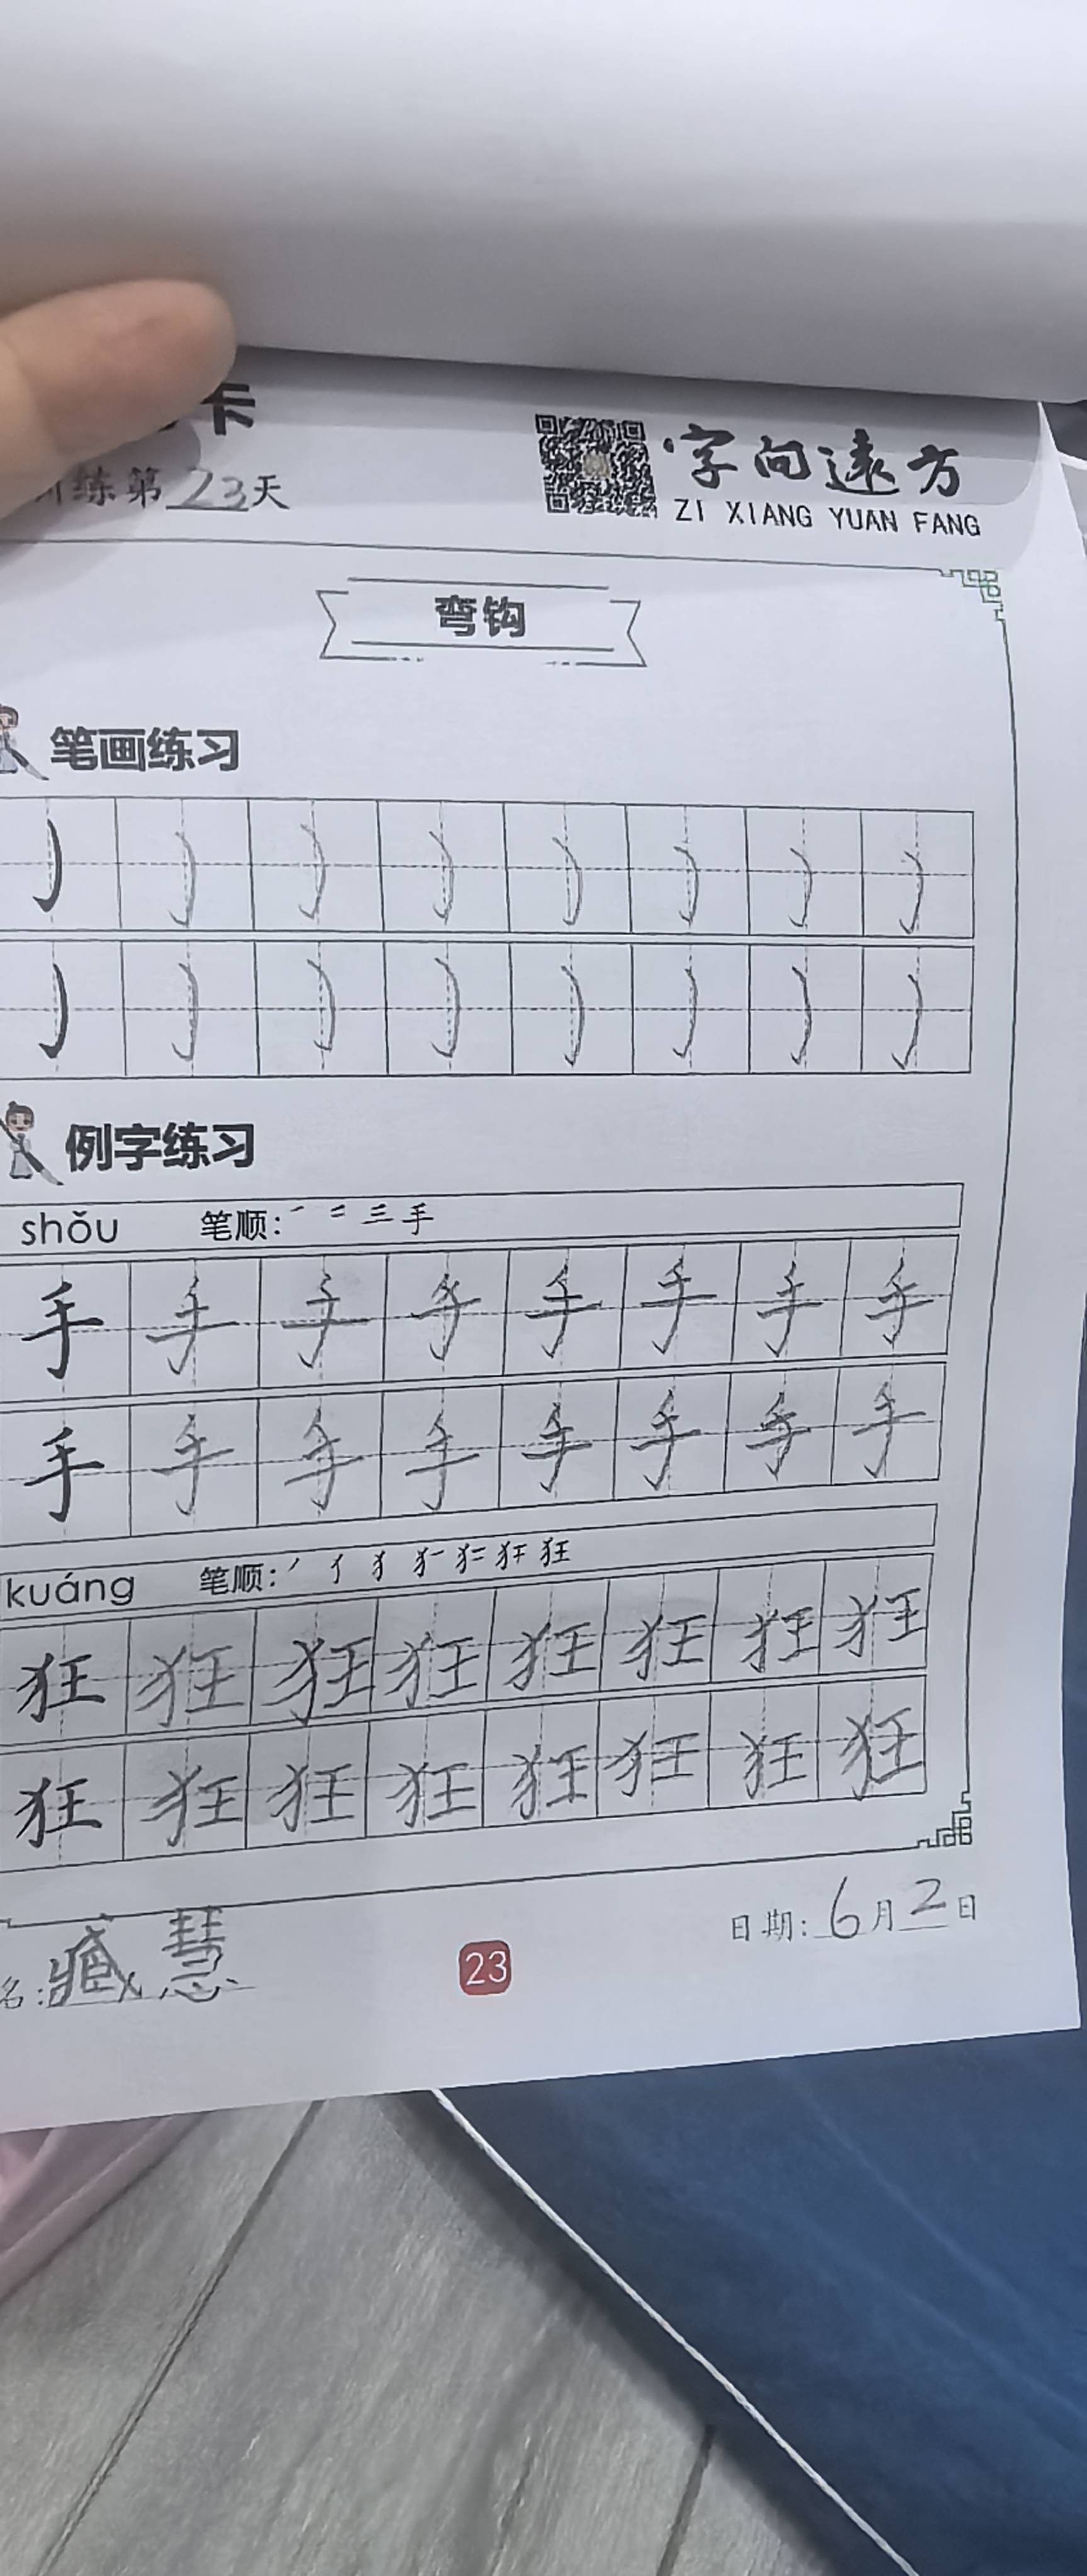 卡
训练第23天
字向遠方
ZI XIANG YUAN FANG
弯钩
笔画练习
例字练习
shǒu 笔顺: 一 二 三 手
手 手 手 手 手 手 手 手
手 手 手 手 手 手 手 手
kuáng 笔顺: 狂
狂 狂 狂 狂 狂 狂 狂 狂
狂 狂 狂 狂 狂 狂 狂 狂
名: 臧慧
23
日期: 6月2日